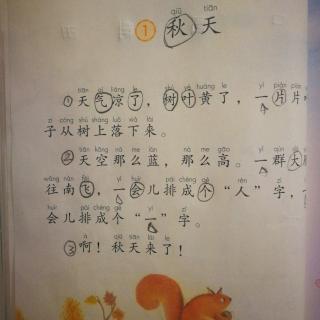 qiū tiān
① 秋天
tiān qì liáng le shù yè huáng le yí piàn piàn
① 天气凉了，树叶黄了，一片片
zi cóng shù shàng luò xià lái
子从树上落下来。
tiān kōng nà me lán nà me gāo yì qún dà
② 天空那么蓝，那么高。一群大
wǎng nán fēi yí huìr pái chéng gè rén zì
往南飞，一会儿排成个“人”字，一
huìr pái chéng gè yī zì
会儿排成个“一”字。
à qiū tiān lái le
③ 啊！秋天来了！